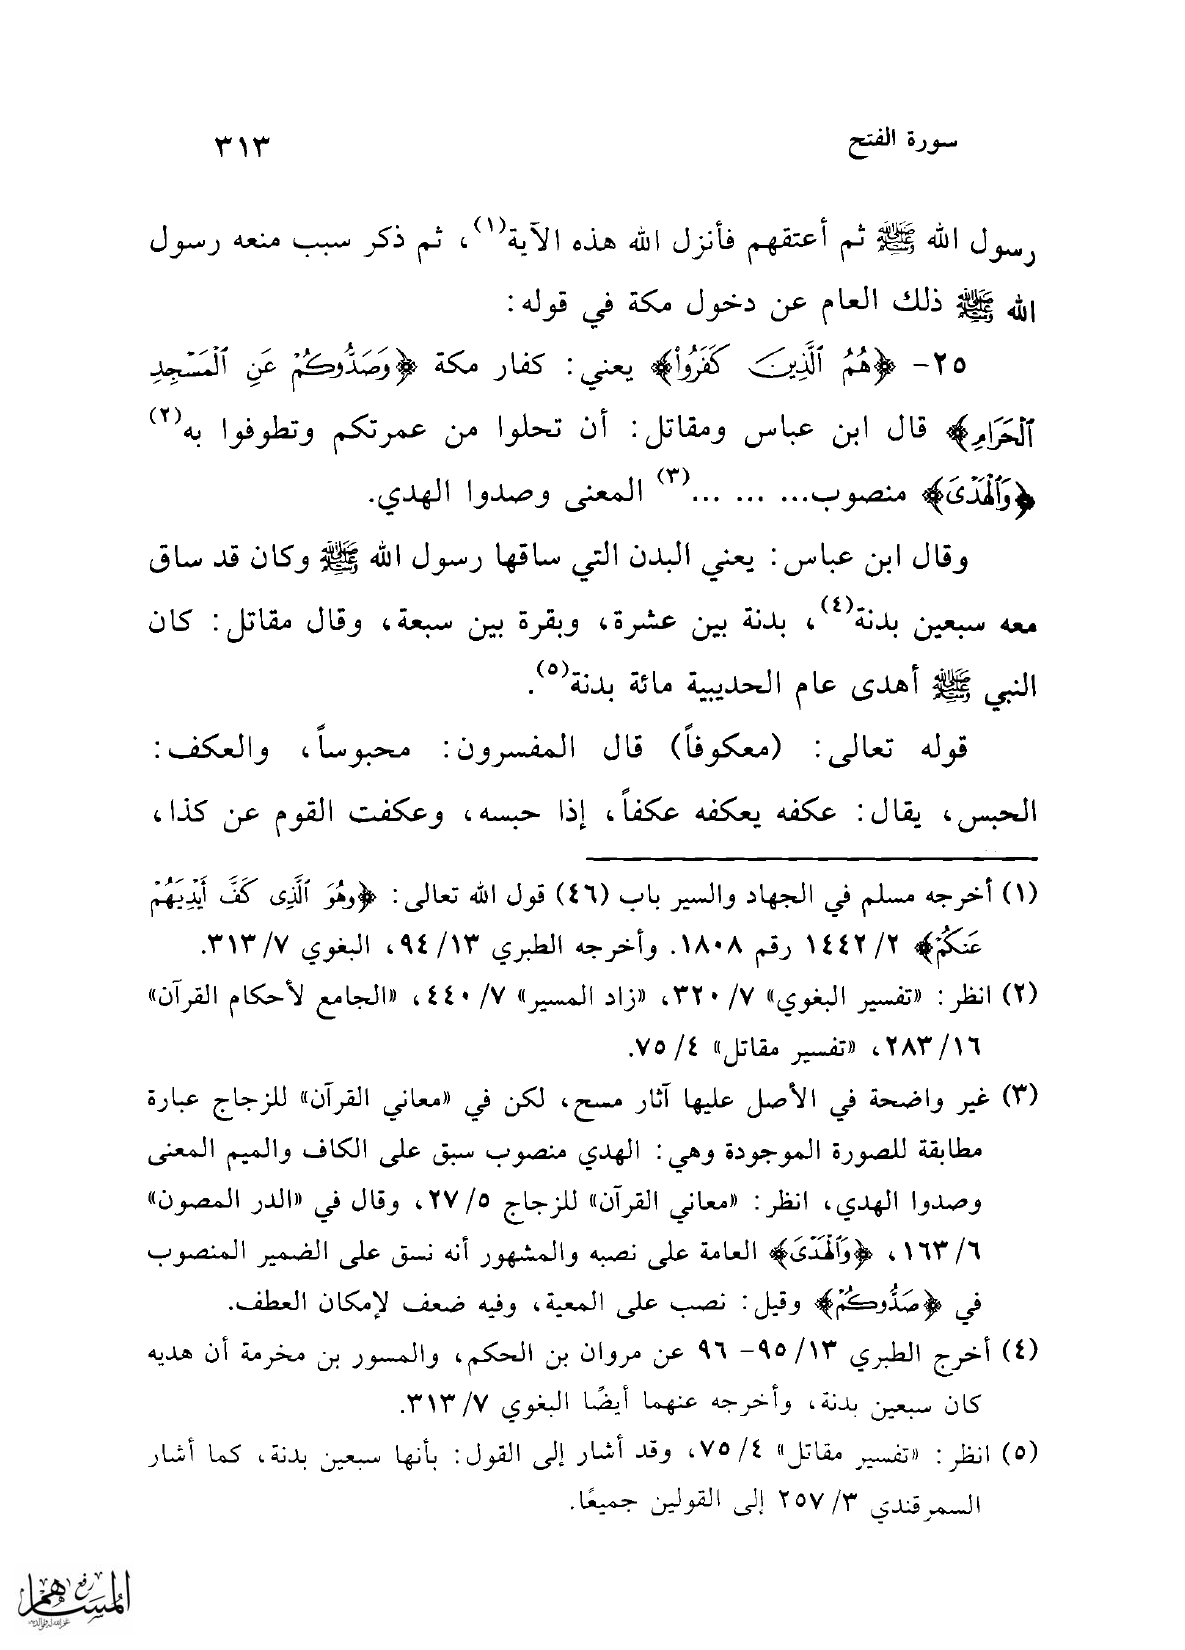 سورة الفتح ٣١٣
رسول الله ﷺ ثم أعتقهم فأنزل الله هذه الآية(١)، ثم ذكر سبب منعه رسول
الله ﷺ ذلك العام عن دخول مكة في قوله:
٢٥- ﴿هُمُ ٱلَّذِينَ كَفَرُواْ﴾ يعني: كفار مكة ﴿وَصَدُّوكُمْ عَنِ ٱلْمَسْجِدِ
ٱلْحَرَامِ﴾ قال ابن عباس ومقاتل: أن تحلوا من عمرتكم وتطوفوا به(٢)
﴿وَٱلْهَدْىَ﴾ منصوب... ... ...(٣) المعنى وصدوا الهدي.
وقال ابن عباس: يعني البدن التي ساقها رسول الله ﷺ وكان قد ساق
معه سبعين بدنة(٤)، بدنة بين عشرة، وبقرة بين سبعة، وقال مقاتل: كان
النبي ﷺ أهدى عام الحديبية مائة بدنة(٥).
قوله تعالى: (معكوفاً) قال المفسرون: محبوساً، والعكف:
الحبس، يقال: عكفه يعكفه عكفاً، إذا حبسه، وعكفت القوم عن كذا،
(١) أخرجه مسلم في الجهاد والسير باب (٤٦) قول الله تعالى: ﴿وهُوَ ٱلَّذِى كَفَّ أَيْدِيَهُمْ
عَنكُمْ﴾ ٢/ ١٤٤٢ رقم ١٨٠٨. وأخرجه الطبري ١٣/ ٩٤، البغوي ٧/ ٣١٣.
(٢) انظر: «تفسير البغوي» ٧/ ٣٢٠، «زاد المسير» ٧/ ٤٤٠، «الجامع لأحكام القرآن»
١٦/ ٢٨٣، «تفسير مقاتل» ٤/ ٧٥.
(٣) غير واضحة في الأصل عليها آثار مسح، لكن في «معاني القرآن» للزجاج عبارة
مطابقة للصورة الموجودة وهي: الهدي منصوب سبق على الكاف والميم المعنى
وصدوا الهدي، انظر: «معاني القرآن» للزجاج ٥/ ٢٧، وقال في «الدر المصون»
٦/ ١٦٣، ﴿وَٱلْهَدْىَ﴾ العامة على نصبه والمشهور أنه نسق على الضمير المنصوب
في ﴿صَدُّوكُمْ﴾ وقيل: نصب على المعية، وفيه ضعف لإمكان العطف.
(٤) أخرج الطبري ١٣/ ٩٥- ٩٦ عن مروان بن الحكم، والمسور بن مخرمة أن هديه
كان سبعين بدنة، وأخرجه عنهما أيضًا البغوي ٧/ ٣١٣.
(٥) انظر: «تفسير مقاتل» ٤/ ٧٥، وقد أشار إلى القول: بأنها سبعين بدنة، كما أشار
السمرقندي ٣/ ٢٥٧ إلى القولين جميعًا.
رفع
المساهم